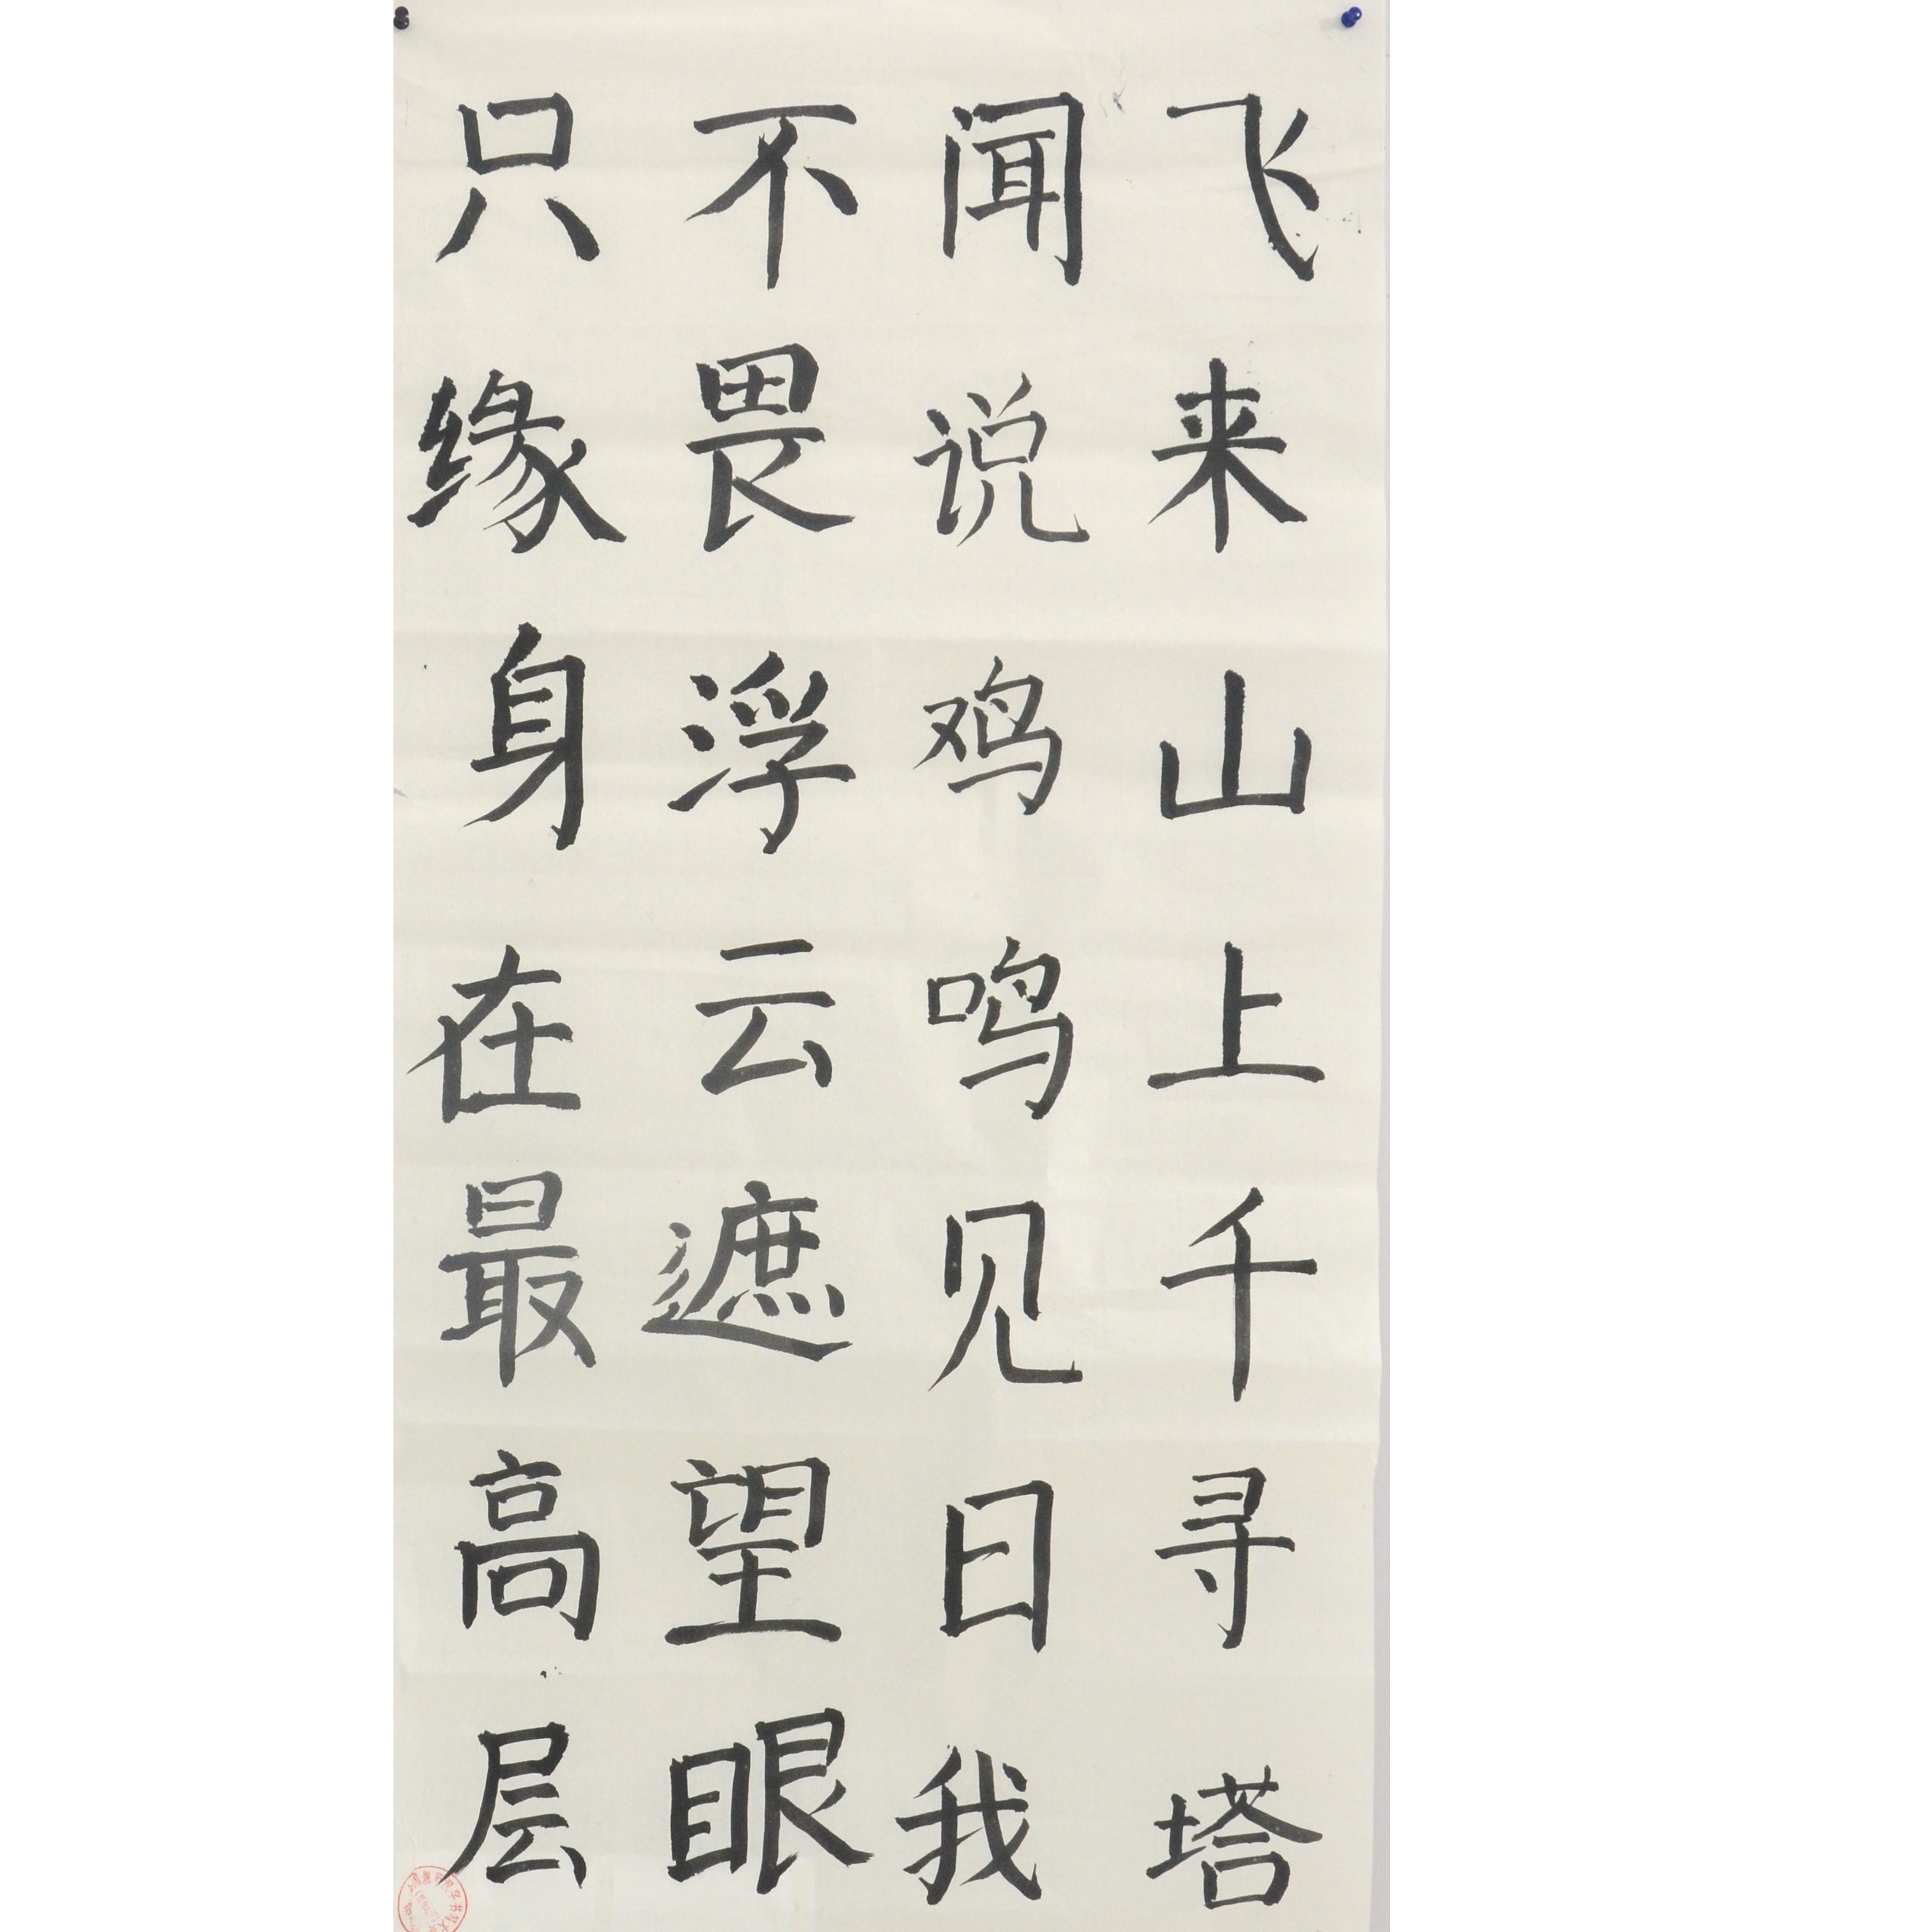 飞来山上千寻塔
闻说鸡鸣见日我
不畏浮云遮望眼
只缘身在最高层